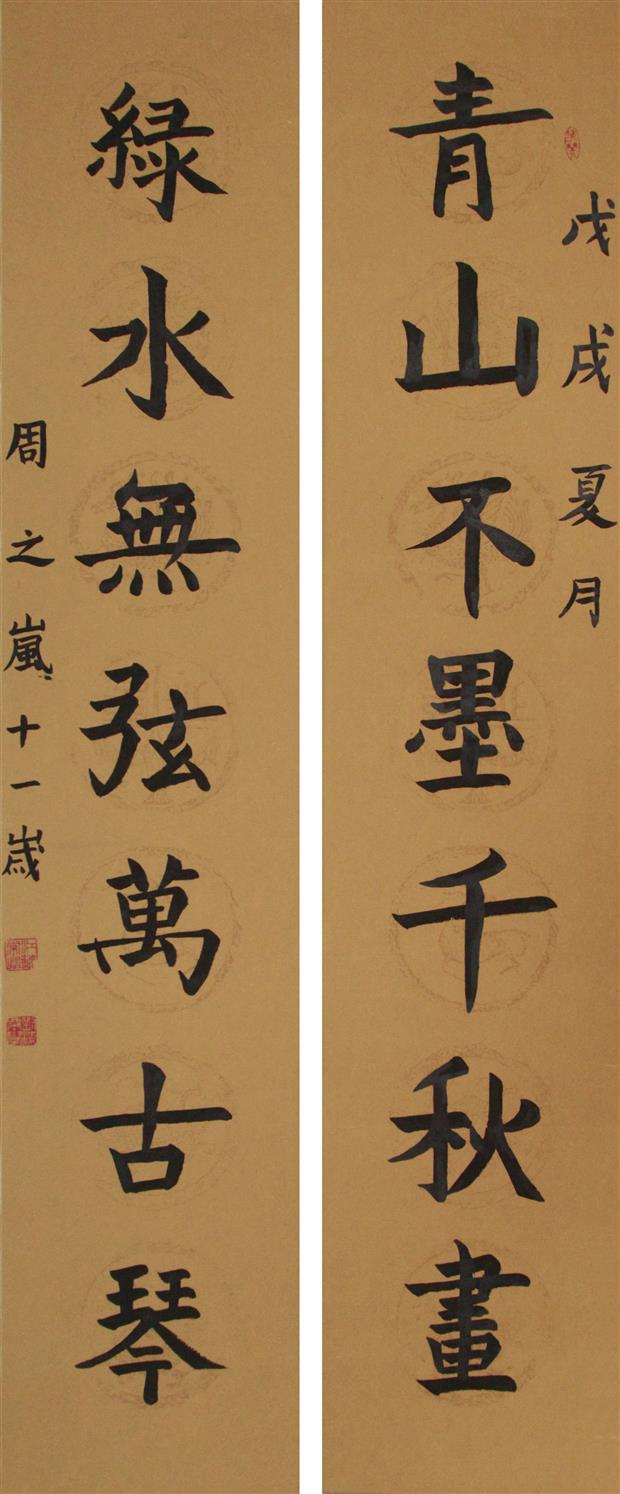 戊戌夏月
青山不墨千秋畫
緑水無弦萬古琴
周之嵐十一歲